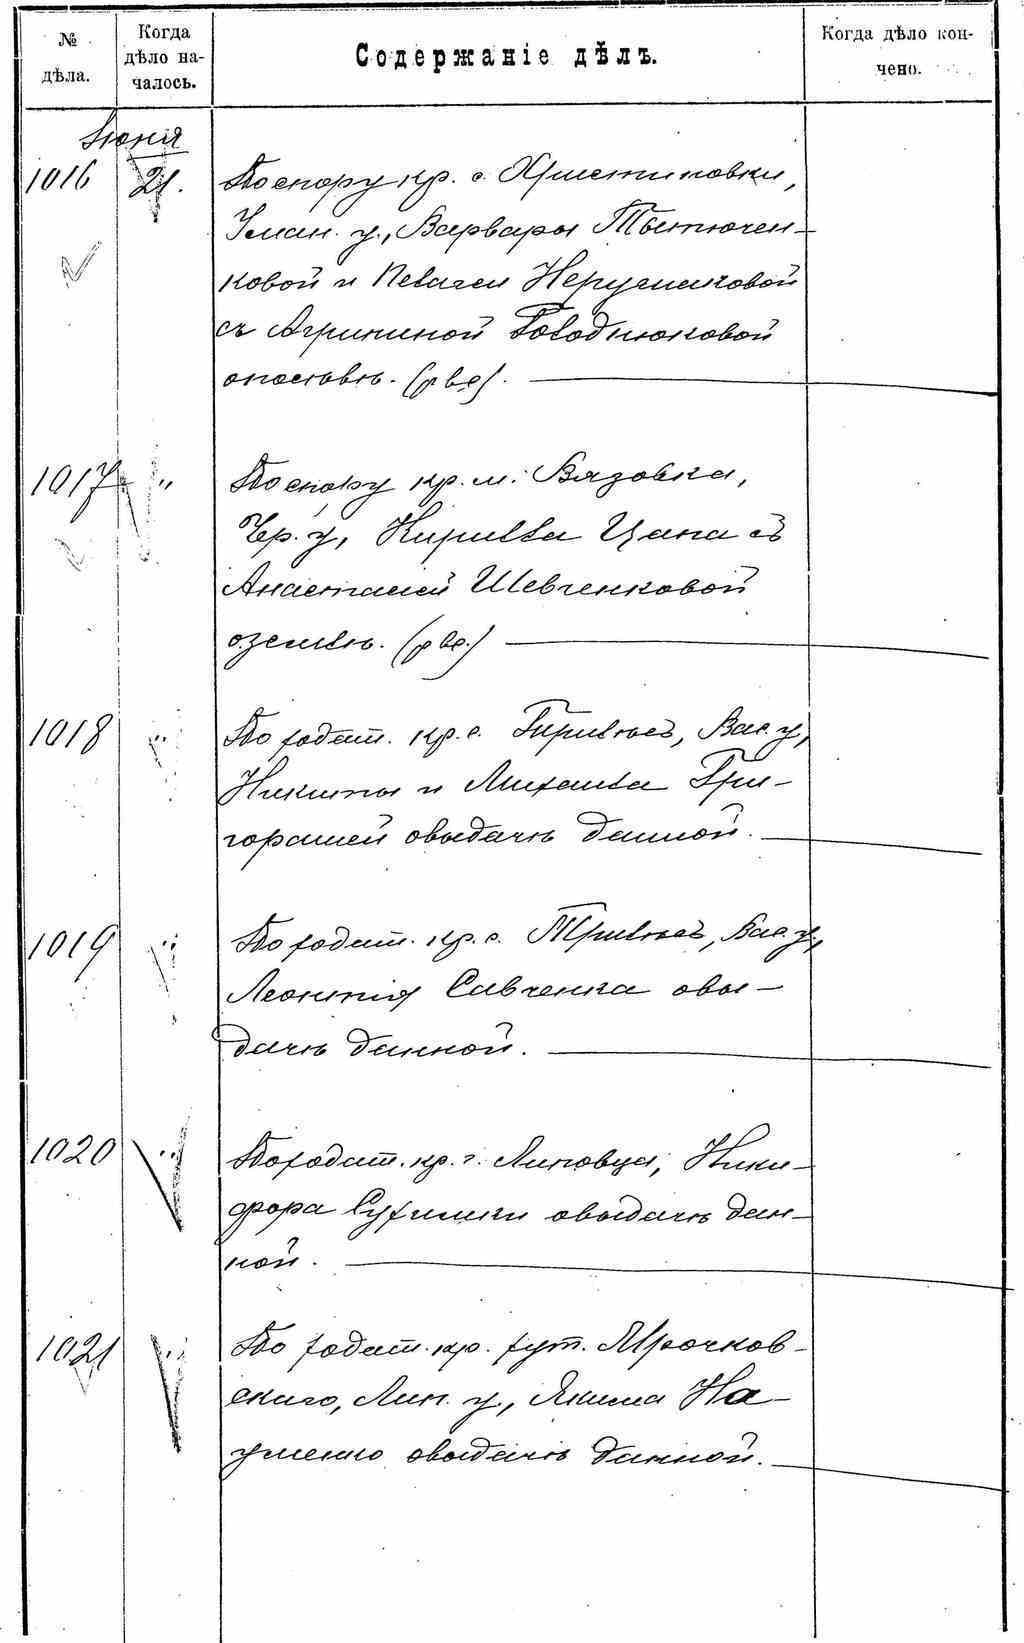 № дѣла.
Когда дѣло на-
чалось.
Содержаніе дѣлъ.
Когда дѣло кон-
чено.
Июня
1016 21. По спору кр. с. Христиновки,
Уман. у., Варвары
ковой и Пелагеи
съ Агрипиной
(рве).
1017 " По спору кр. м. Вязовка,
Чр. у, Кирилла Цапа съ
Анастасией Шевченковой
о землѣ. (рве.)
1018 " По ходат. кр. с. Вас. у,
Никиты и Михаила Гри-
горашей о выдачѣ данной.
1019 " По ходат. кр. с. Вас. у.,
Леонтія Савченка о вы-
дачѣ данной.
1020 " По ходат. кр. г. Липовца, Ники-
фора о выдачѣ дан-
ной.
1021 " По ходат. кр. хут. Мрочков-
скаго, Лип. у., Якима На-
уменко о выдачѣ данной.